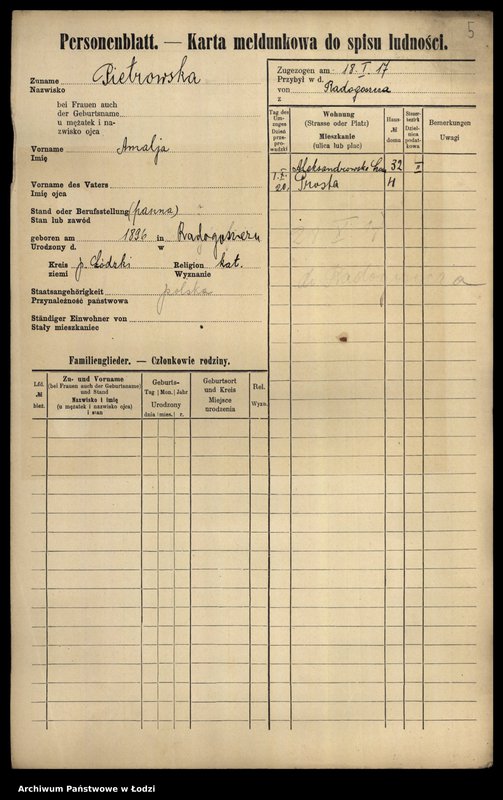 5
Personenblatt. — Karta meldunkowa do spisu ludności.
Zuname Pietrowska
Nazwisko
bei Frauen auch
der Geburtsname
u mężatek i na-
zwisko ojca
Vorname Amalja
Imię
Vorname des Vaters
Imię ojca
Stand oder Berufsstellung (panna)
Stan lub zawód
geboren am 1896 in Radogoszczu
Urodzony d. w
Kreis p. Łódzki Religion kat.
ziemi Wyznanie
Staatsangehörigkeit polska
Przynależność państwowa
Ständiger Einwohner von
Stały mieszkaniec
Familienglieder. — Członkowie rodziny.
Lfd. № bież.
Zu- und Vorname
(bei Frauen auch der Geburtsname)
und Stand
Nazwisko i imię
(u mężatek i nazwisko ojca)
i stan
Geburts-
Tag Mon. Jahr
Urodzony
dnia mies. r.
Geburtsort
und Kreis
Miejsce
urodzenia
Rel.
Wyzn.
Zugezogen am 18.I.17
Przybył w d.
von Radogoszcza
z
Tag des
Um-
zuges
Dzień
prze-
prowa-
dzki
Wohnung
(Strasse oder Platz)
Mieszkanie
(ulica lub plac)
Haus-
№
domu
Steuer-
bezirk
Dziel-
nica
podat-
kowa
Bemerkungen
Uwagi
Aleksandrowska 32 II
Prosta 4
Archiwum Państwowe w Łodzi